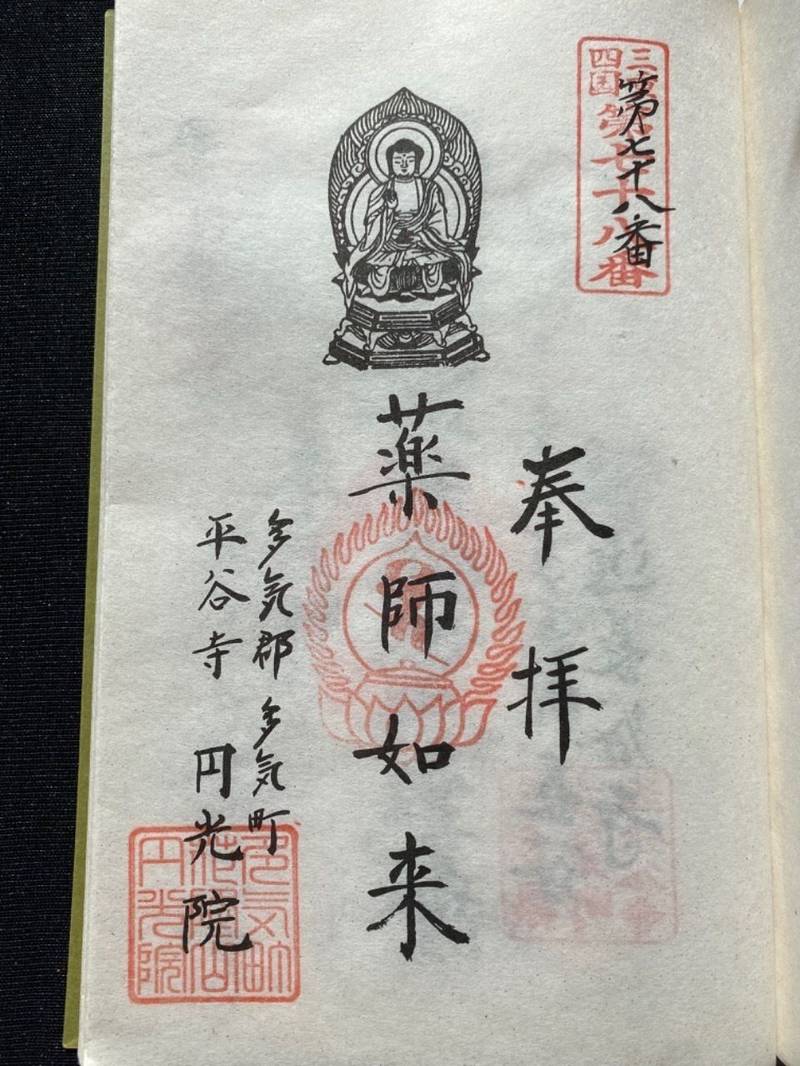 三重
四国
第七十八番
第七十八番
奉拝
薬師如来
多気郡多気町
平谷寺 円光院